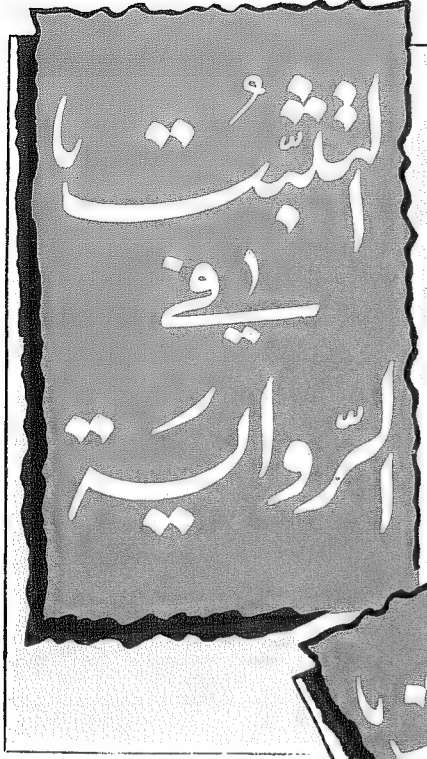 التثبُّتُ
في
الرّواية